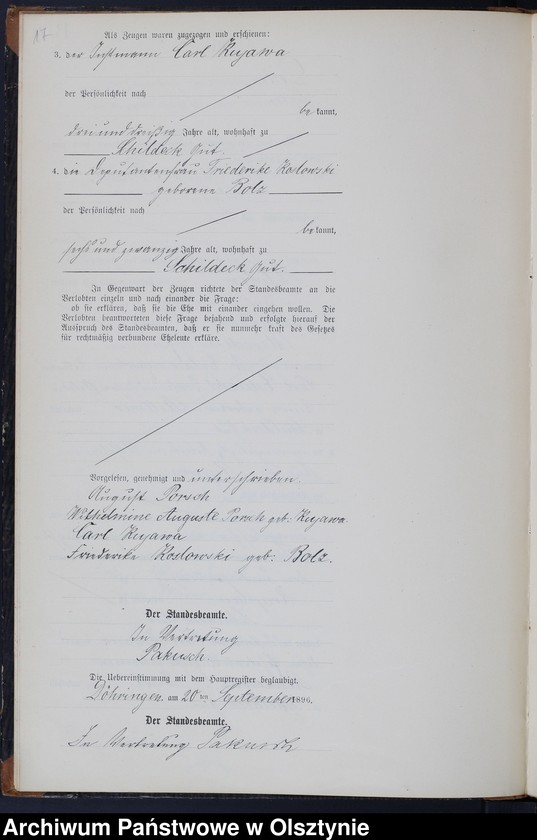 17
Als Zeugen waren zugezogen und erschienen:
3. der Instmann Carl Kujawa
der Persönlichkeit nach
be kannt,
drei und dreißig Jahre alt, wohnhaft zu
Schildeck Gut.
4. die Deputantenfrau Friederike Koslowski
geborene Bolz
der Persönlichkeit nach
be kannt,
sechs und zwanzig Jahre alt, wohnhaft zu
Schildeck Gut.
In Gegenwart der Zeugen richtete der Standesbeamte an die
Verlobten einzeln und nach einander die Frage:
ob sie erklären, daß sie die Ehe mit einander eingehen wollen. Die
Verlobten beantworteten diese Frage bejahend und erfolgte hierauf der
Ausspruch des Standesbeamten, daß er sie nunmehr kraft des Gesetzes
für rechtmäßig verbundene Eheleute erkläre.
Vorgelesen, genehmigt und unterschrieben
August Porsch
Wilhelmine Auguste Porsch geb: Kujawa
Carl Kujawa
Friederike Koslowski geb: Bolz.
Der Standesbeamte.
In Vertretung
Pakusch.
Die Uebereinstimmung mit dem Hauptregister beglaubigt.
Döhringen, am 20 ten September 1896.
Der Standesbeamte.
In Vertretung Pakusch
Archiwum Państwowe w Olsztynie